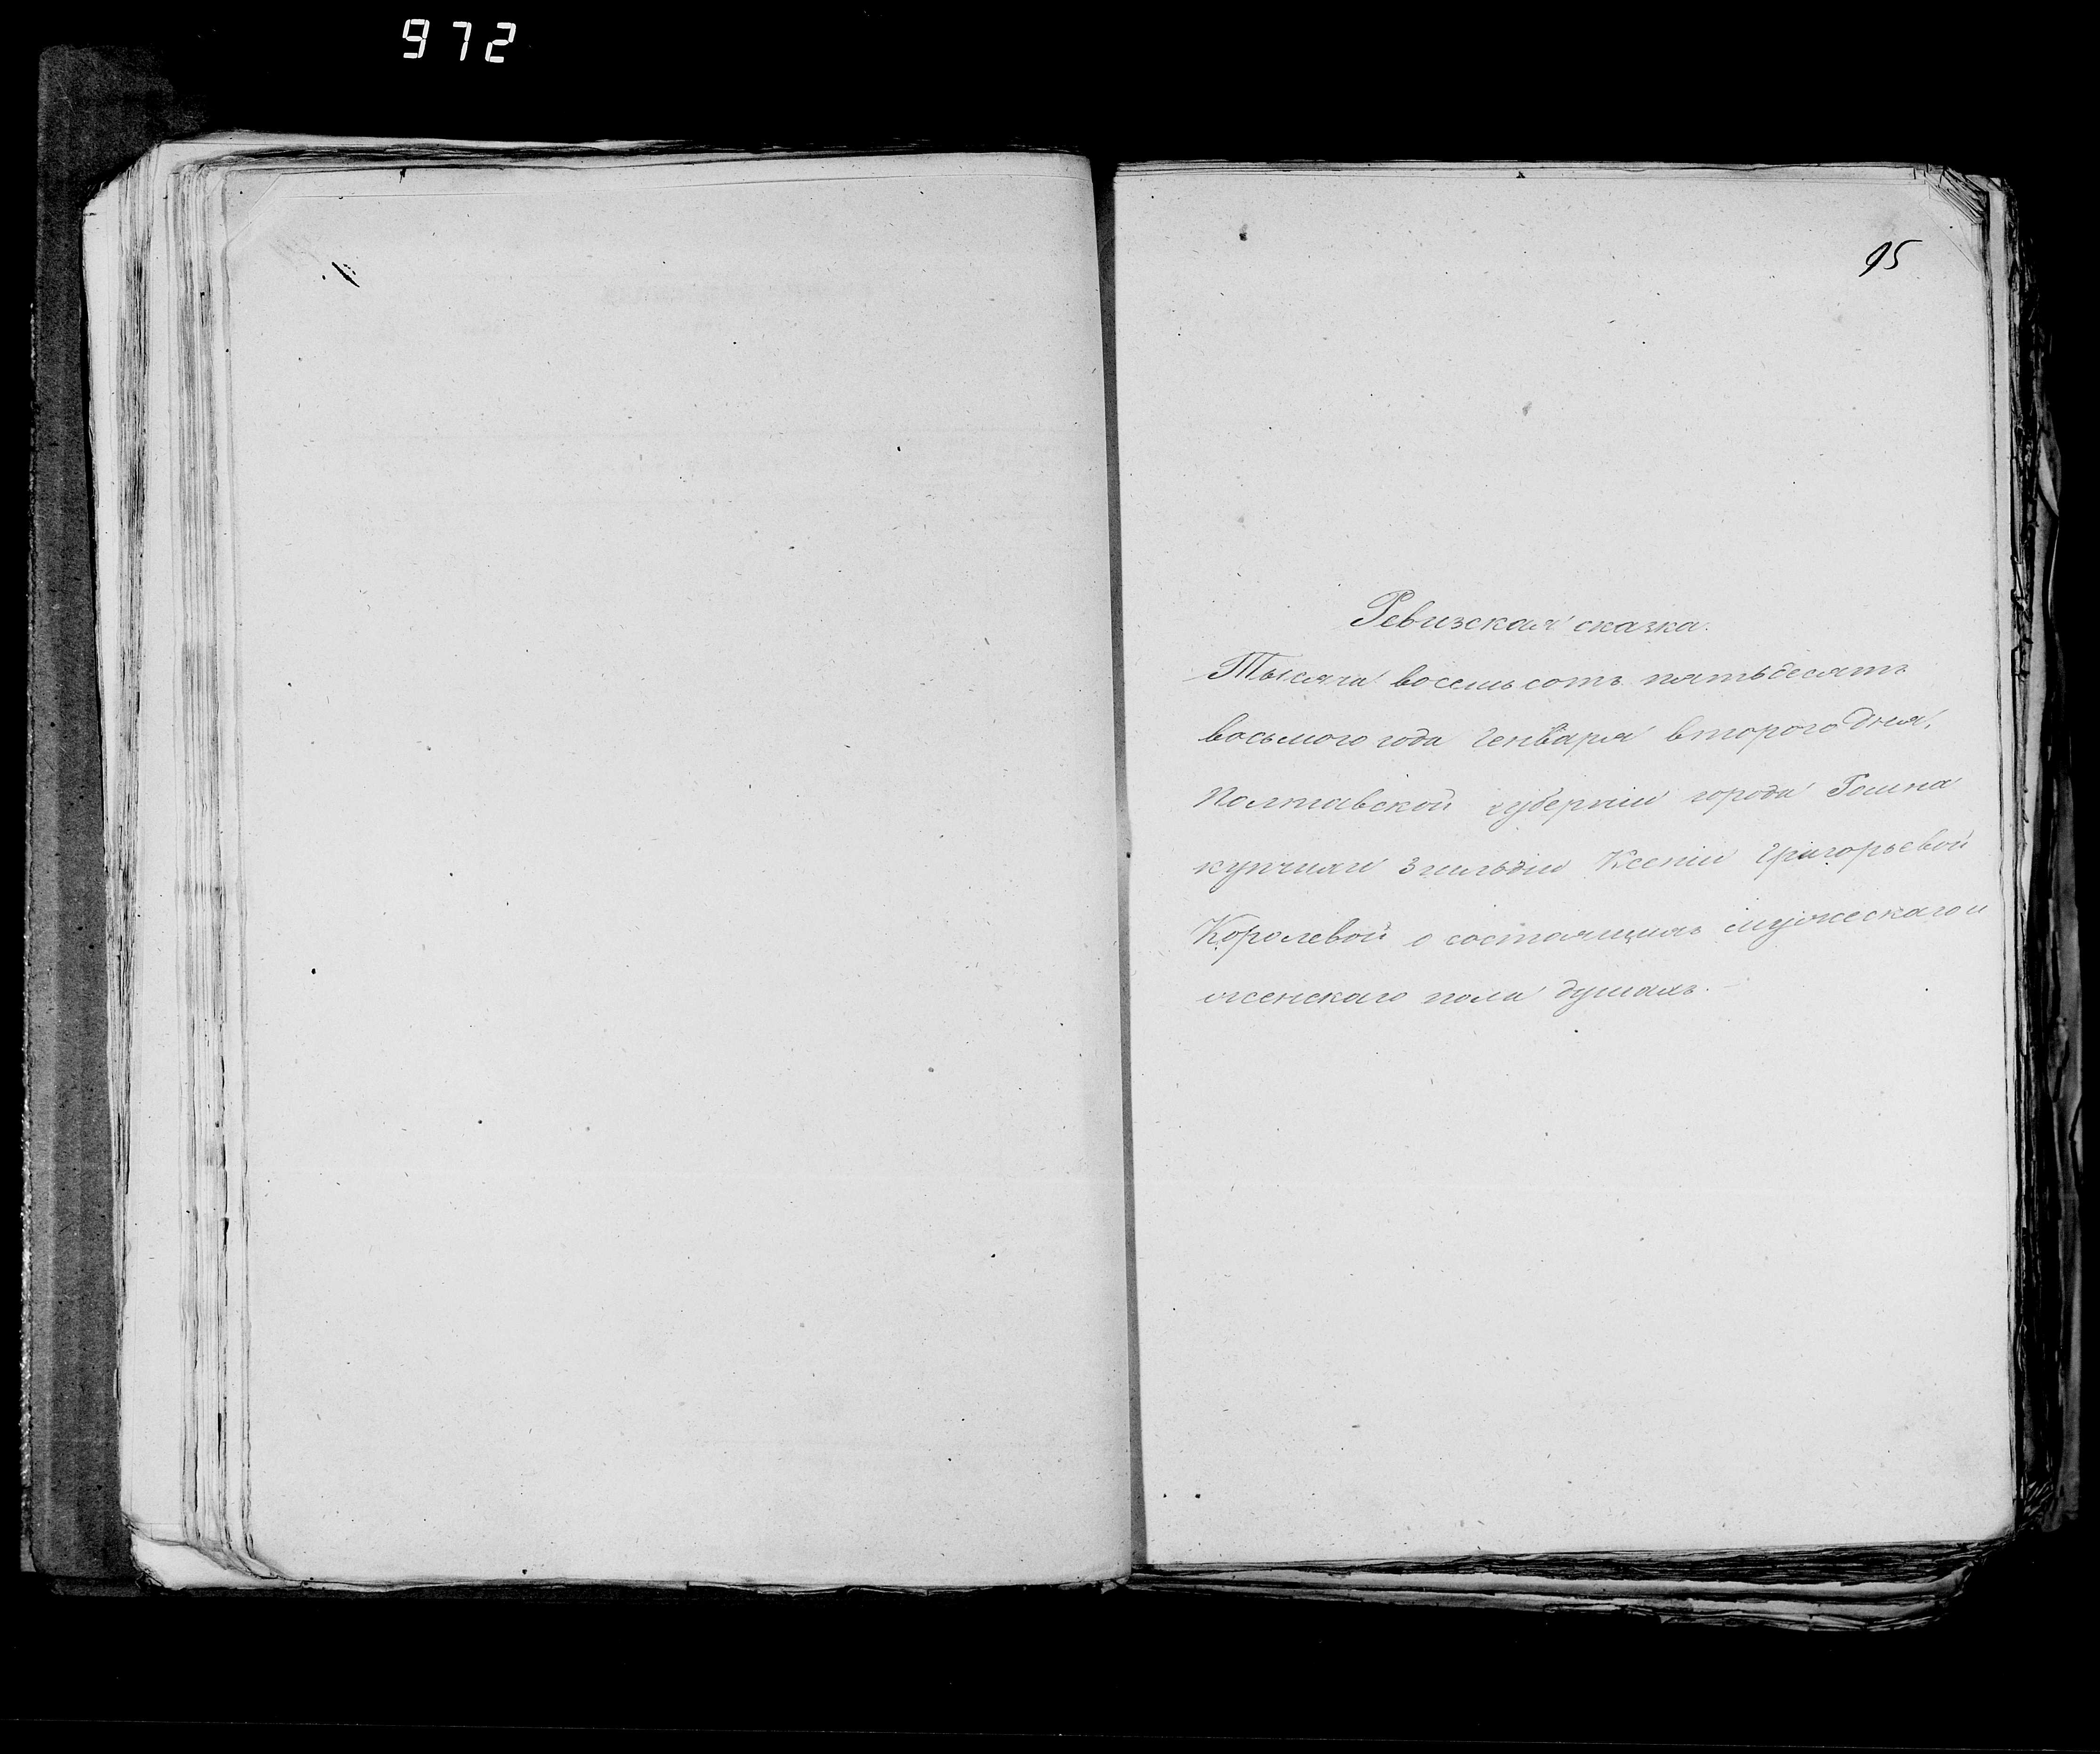 972
95
Ревизская сказка.
Тысяча восемь сотъ пятьдесятъ
восьмого года Генваря второго дня,
Полтавской губерніи города Ромна
купчихи 3 гильдіи Ксеніи Григорьевой
Королевой о состоящихъ мужескаго и
женскаго пола душахъ.